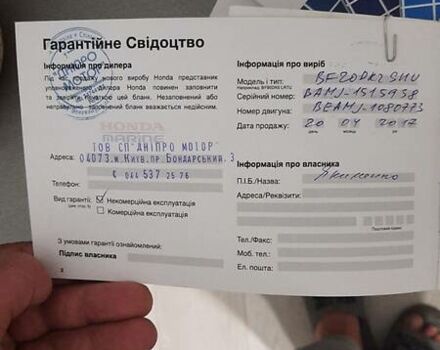 Гарантійне Свідоцтво
Інформація про дилера
Під час продажу нового виробу Honda представник
уповноваженого дилера Honda повинен заповнити
та завірити печаткою цей бланк. Незаповнений або
неправильно заповнений бланк вважається недійсним.
ДНІПРО
МОТОР
HONDA
MARINE
ТОВ СП"ДНІПРО МОТОР"
Адреса: 04073.м.Київ.пр.Бондарський, 3
Телефон: 044 537 25 76
Вид гарантії: Некомерційна експлуатація
Комерційна експлуатація
З умовами гарантії ознайомлений:
Підпис власника
Інформація про виріб
Модель і тип: BF20DK2 SHU
Серійний номер: BAMJ-1515958
Номер двигуна: BEAMJ-1080773
Дата продажу: 20 04 2017
день місяць рік
Інформація про власника
П.І.Б./Назва:
Адреса/Реквізити:
Поштовий індекс
Тел./Факс:
Моб. тел.:
Ел. пошта: